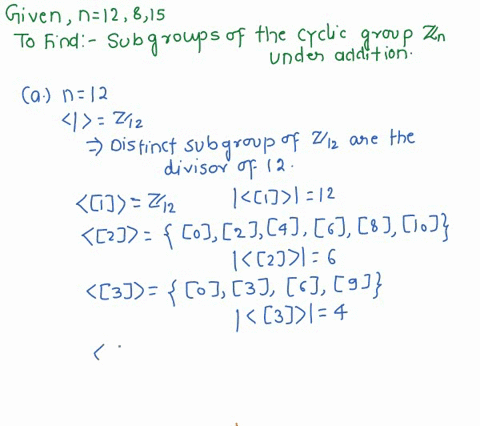 Given, n=12, 8, 15
To Find:- Subgroups of the cyclic group ℤn
under addition.
(a.) n=12
<1> = ℤ12
⇒ Distinct subgroup of ℤ12 are the
divisor of 12.
<[1]> = ℤ12 |<[1]>| = 12
<[2]> = { [0], [2], [4], [6], [8], [10] }
|<[2]>| = 6
<[3]> = { [0], [3], [6], [9] }
|<[3]>| = 4
<